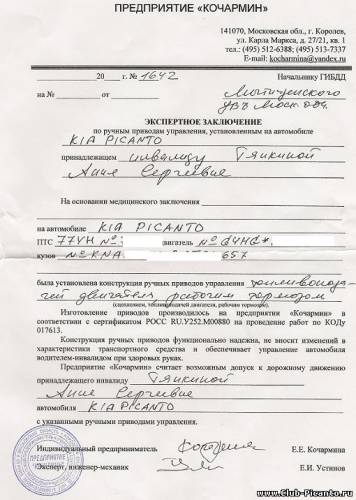 ПРЕДПРИЯТИЕ «КОЧАРМИН»
141070, Московская обл., г. Королев,
ул. Карла Маркса, д. 27/21, кв. 1
тел.: (495) 512-6388; (495) 513-7337
E-mail: kocharmina@yandex.ru
20 г. № 1642 Начальнику ГИБДД
на № от Мытищенского
УВД Моск обл.
ЭКСПЕРТНОЕ ЗАКЛЮЧЕНИЕ
по ручным приводам управления, установленным на автомобиле
KIA PICANTO
принадлежащем инвалиду Тяпкиной
Анне Сергеевне
На основании медицинского заключения
на автомобиле KIA PICANTO
ПТС 77УН № двигатель № G4HG*
кузов № KNA 657
была установлена конструкция ручных приводов управления топливопода
чей двигателя рабочим тормозом
(сцеплением, топливоподачей двигателя, рабочим тормозом)
Изготовление приводов произволось на предприятии «Кочармин» в
соответствии с сертификатом РОСС RU.У252.М00880 на проведение работ по КОДу
017613.
Конструкция ручных приводов функционально надежна, не вносит изменений в
характеристики транспортного средства и обеспечивает управление автомобиля
водителем-инвалидом при здоровых руках.
Предприятие «Кочармин» считает возможным допуск к дорожному движению
принадлежащего инвалиду Тяпкиной
Анне Сергеевне
автомобиля KIA PICANTO
с указанными ручными приводами управления.
Индивидуальный предприниматель Е.Е. Кочармина
Эксперт, инженер-механик Е.И. Устинов
ПРЕДПРИЯТИЕ
www.Club-Picanto.ru